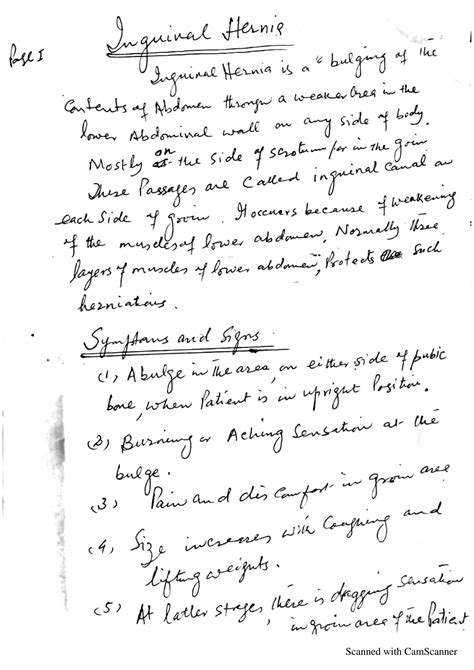 Page I
Inguinal Hernia
Inguinal Hernia is a "bulging of the
Contents of Abdomen through a weaker area in the
lower Abdominal wall on any side of body.
Mostly on the side of scrotum/or in the groin.
These Passages are Called inguinal canal on
each side of groin. It occurs because of weakening
of the muscles of lower abdomen, Normally three
layers of muscles of lower abdomen, Protects such
herniations.
Symptoms and Signs
(1) A bulge in the area, on either side of pubic
bone, when Patient is in upright Position.
(2) Burning or Aching Sensation at the
bulge.
(3) Pain and discomfort in groin area
(4) Size increases with Coughing and
lifting weights.
(5) At latter stages, there is dragging sensation
in groin area of the Patient
Scanned with CamScanner